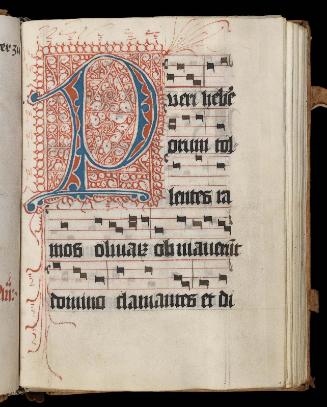 Pueri hebre
orum tol
lentes ra
mos olivarum obviaverunt
domino clamantes et di